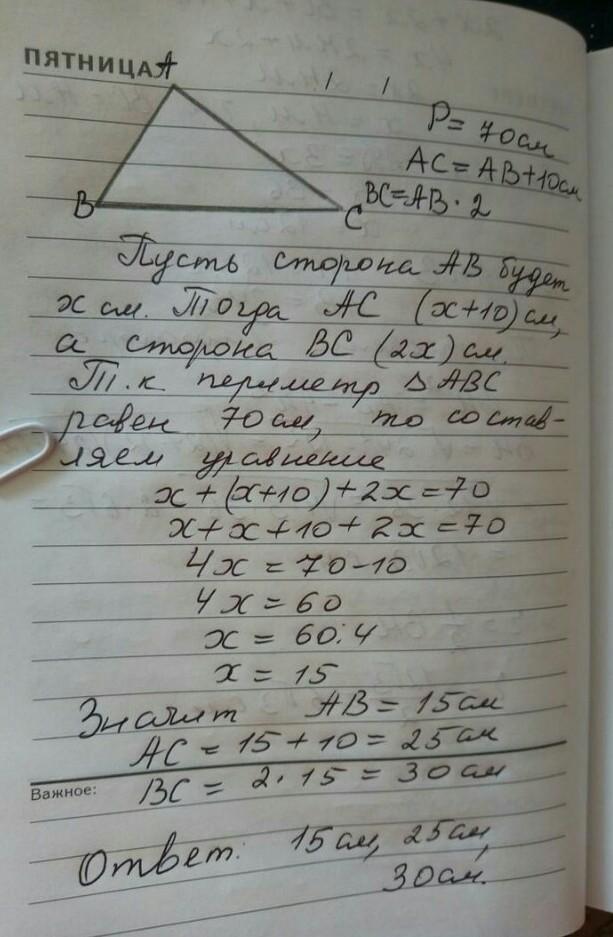 ПЯТНИЦА
A
P = 70см
AC = AB + 10см
BC = AB · 2
B
C
Пусть сторона AB будет
x см. Тогда AC (x+10) см,
а сторона BC (2x) см.
Т.к. периметр △ ABC
равен 70см, то состав-
ляем уравнение
x + (x+10) + 2x = 70
x + x + 10 + 2x = 70
4x = 70 - 10
4x = 60
x = 60:4
x = 15
Значит AB = 15см
AC = 15 + 10 = 25см
Важное: BC = 2 · 15 = 30см
Ответ: 15см, 25см,
30см.